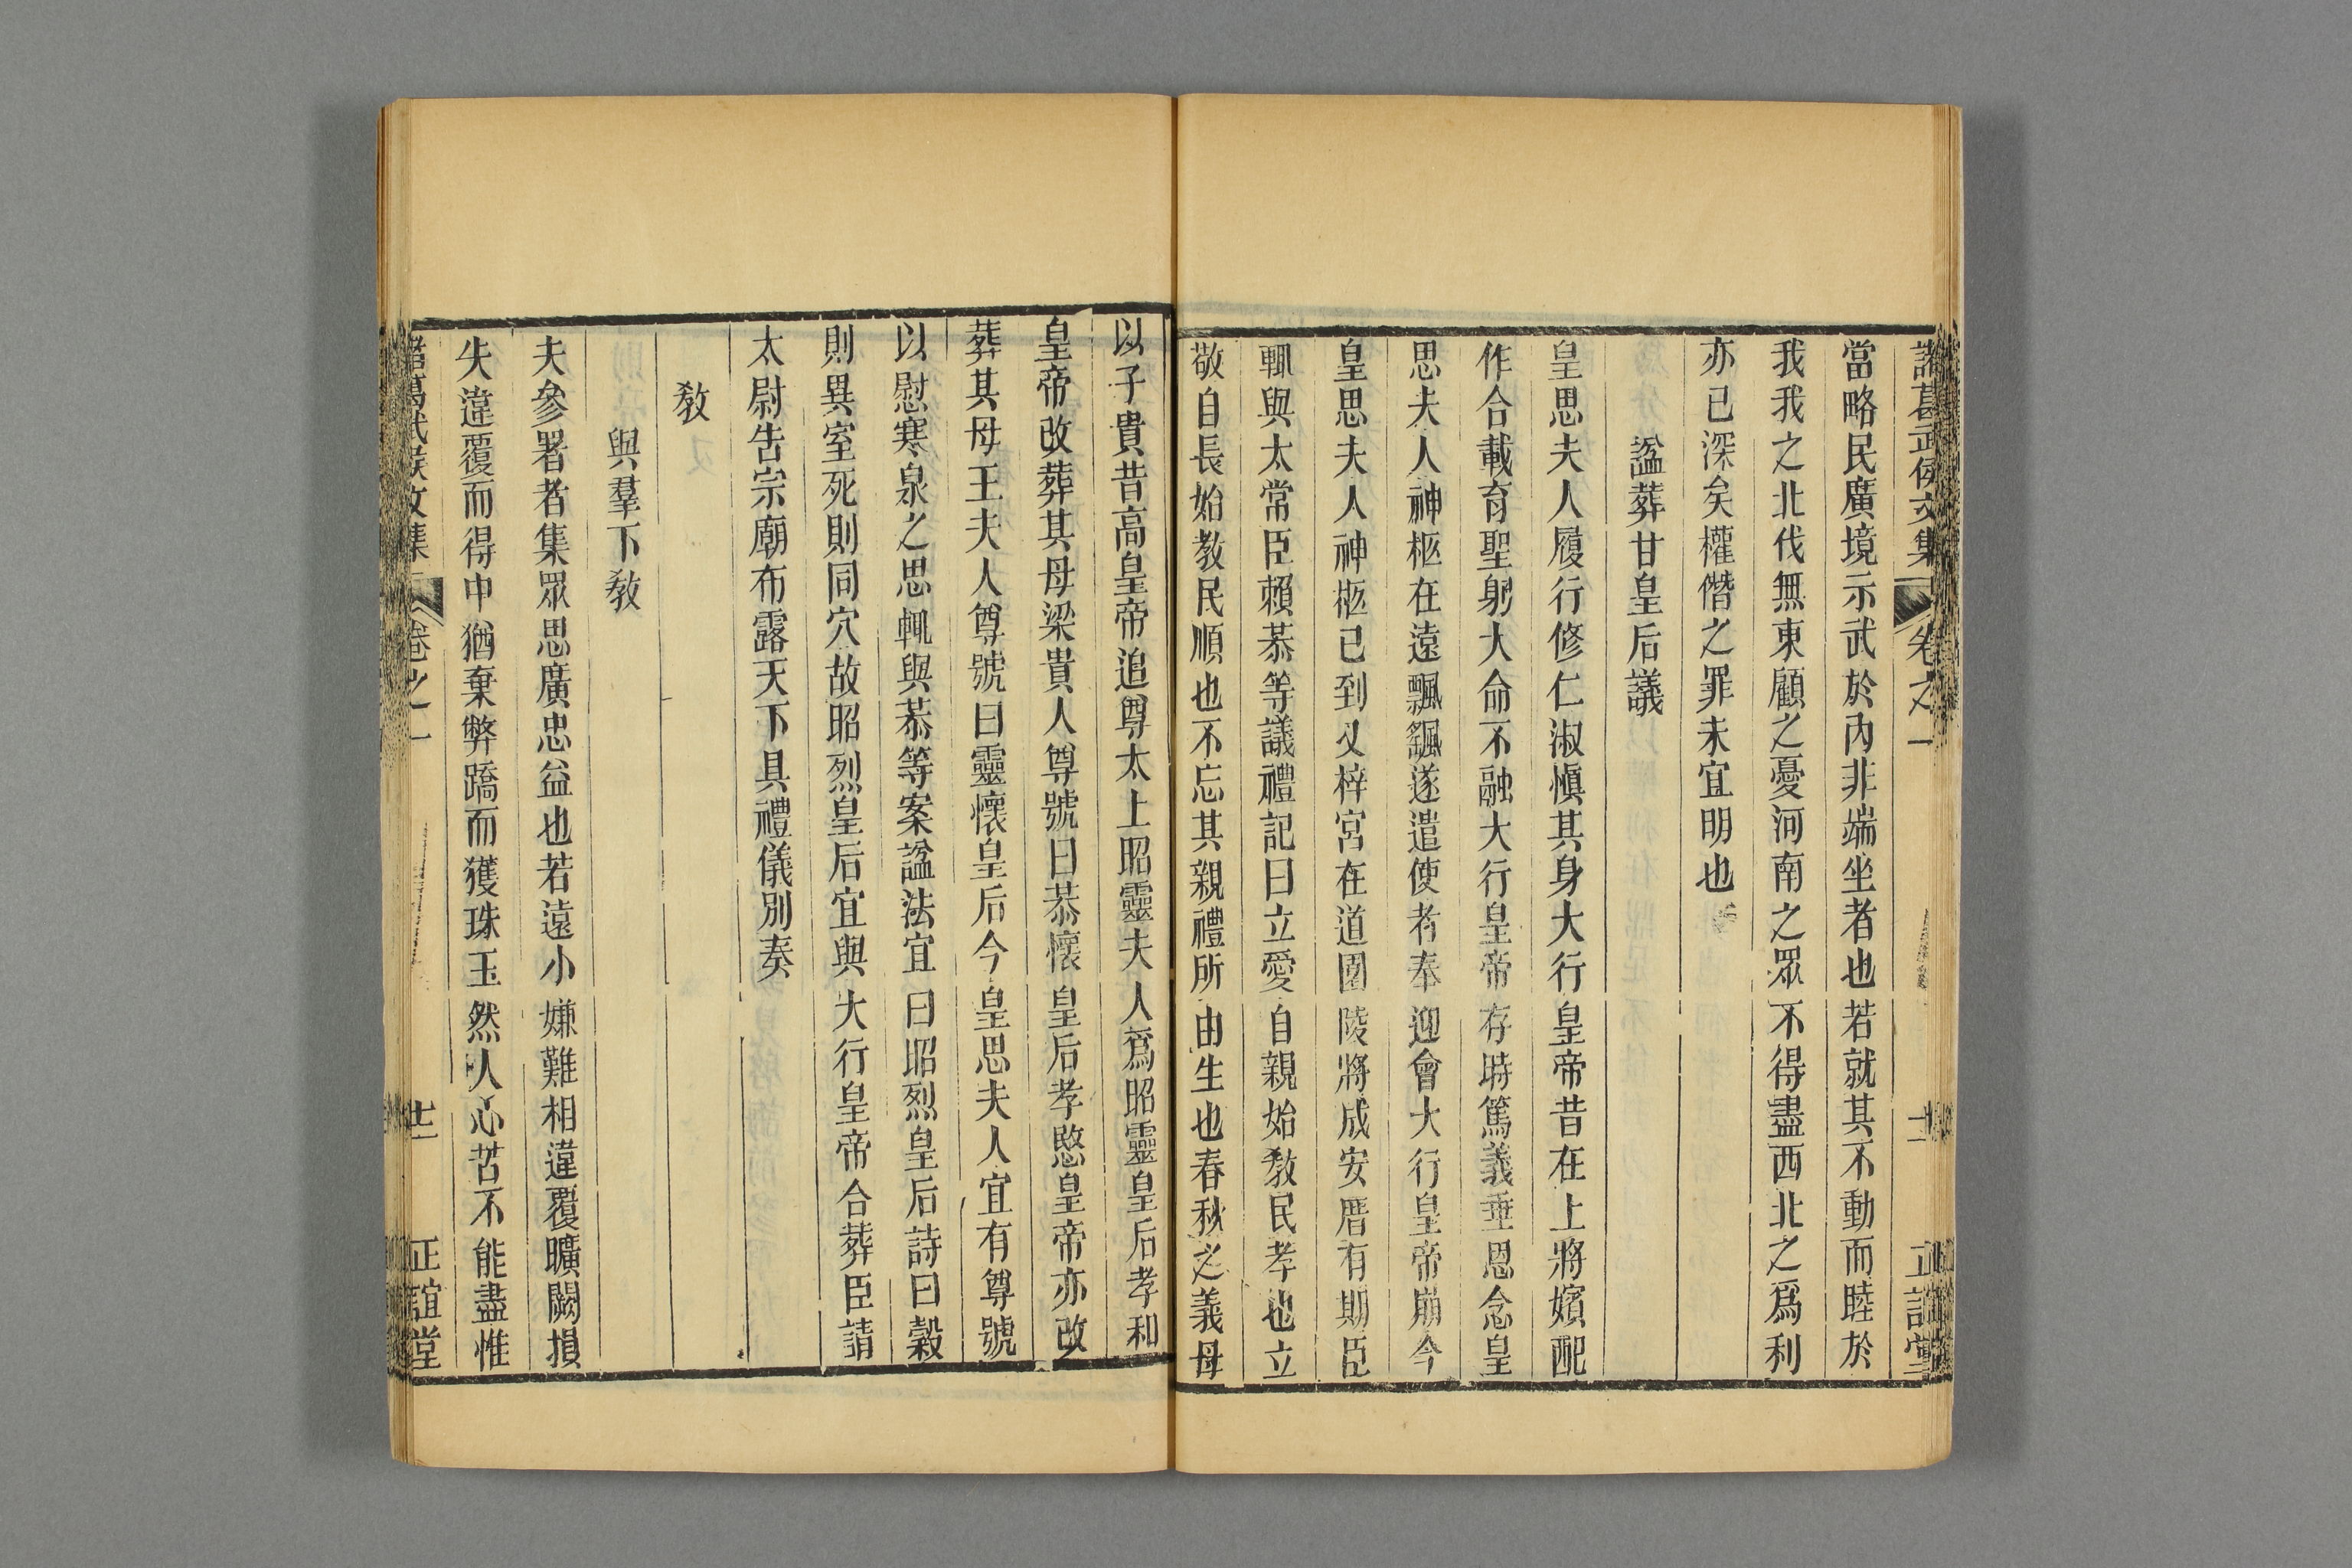 諸葛武侯文集 卷之一 十一 正誼堂
當略民廣境示武於內非端坐者也若就其不動而睦於
我我之北伐無東顧之憂河南之眾不得盡西北之爲利
亦已深矣權僭之罪未宜明也
諡葬甘皇后議
皇思夫人履行修仁淑愼其身大行皇帝昔在上將嬪配
作合載育聖躬大命不融大行皇帝存時篤義垂恩念皇
思夫人神柩在遠飄颻遂遣使者奉迎會大行皇帝崩今
皇思夫人神柩已到又梓宮在道園陵將成安厝有期臣
輒與太常臣賴恭等議禮記曰立愛自親始敎民孝也立
敬自長始敎民順也不忘其親禮所由生也春秋之義母
以子貴昔高皇帝追尊太上昭靈夫人爲昭靈皇后孝和
皇帝改葬其母梁貴人尊號曰恭懷皇后孝愍皇帝亦改
葬其母王夫人尊號曰靈懷皇后今皇思夫人宜有尊號
以慰寒泉之思輒與恭等案諡法宜曰昭烈皇后詩曰穀
則異室死則同穴故昭烈皇后宜與大行皇帝合葬臣請
太尉告宗廟布露天下具禮儀別奏
敎
與羣下敎
夫參署者集眾思廣忠益也若遠小嫌難相違覆曠闕損
失違覆而得中猶棄弊蹻而獲珠玉然人心苦不能盡惟
諸葛武侯文集 卷之一 十二 正誼堂